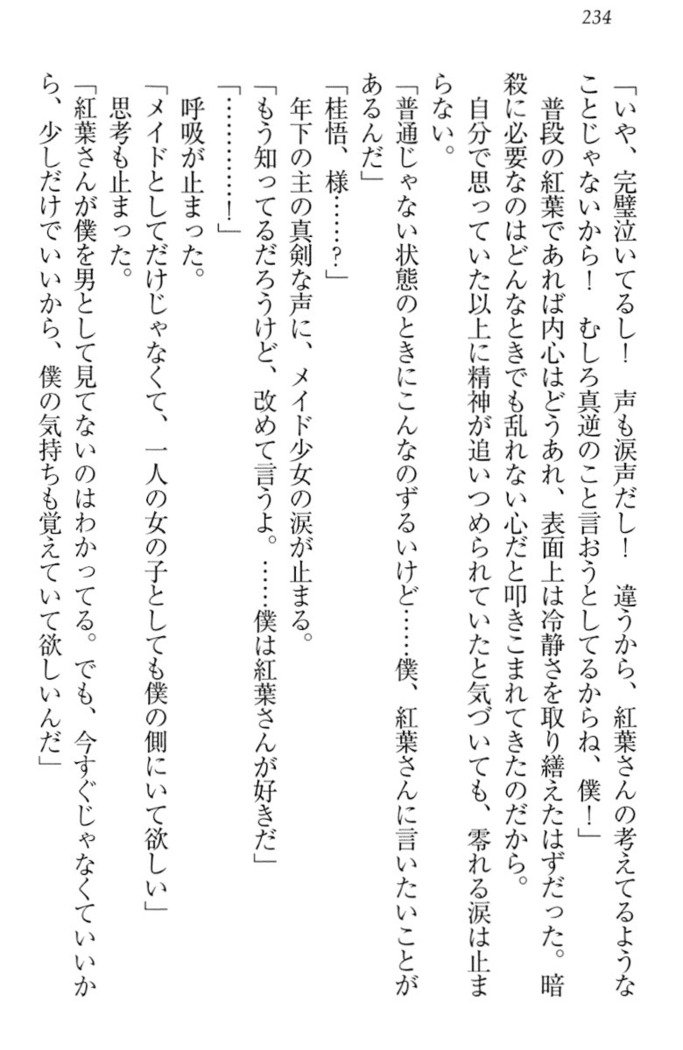 234
「いや、完璧泣いてるし！　声も涙声だし！　違うから、紅葉さんの考えてるような
ことじゃないから！　むしろ真逆のこと言おうとしてるからね、僕！」
　普段の紅葉であれば内心はどうあれ、表面上は冷静さを取り繕えたはずだった。暗
殺に必要なのはどんなときでも乱れない心だと叩きこまれてきたのだから。
　自分で思っていた以上に精神が追いつめられていたと気づいても、零れる涙は止ま
らない。
「普通じゃない状態のときにこんなのずるいけど……僕、紅葉さんに言いたいことが
あるんだ」
「桂悟、様……？」
　年下の主の真剣な声に、メイド少女の涙が止まる。
「もう知ってるだろうけど、改めて言うよ。……僕は紅葉さんが好きだ」
「…………！」
　呼吸が止まった。
「メイドとしてだけじゃなくて、一人の女の子としても僕の側にいて欲しい」
　思考も止まった。
「紅葉さんが僕を男として見てないのはわかってる。でも、今すぐじゃなくていいか
ら、少しだけでいいから、僕の気持ちも覚えていて欲しいんだ」